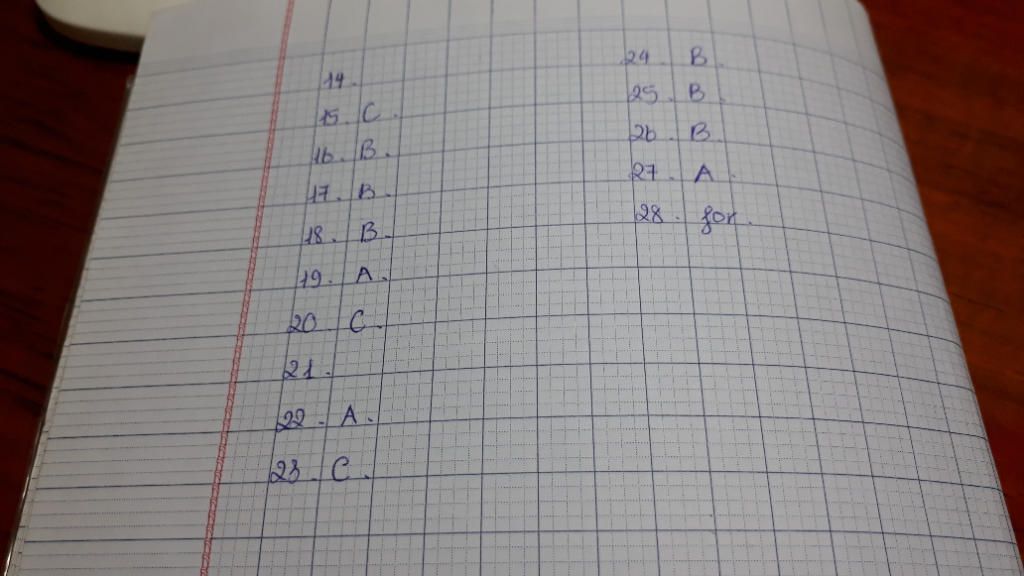 14.
15. C.
16. B.
17. B.
18. B.
19. A.
20. C.
21.
22. A.
23. C.
24. B.
25. B.
26. B.
27. A.
28. for.